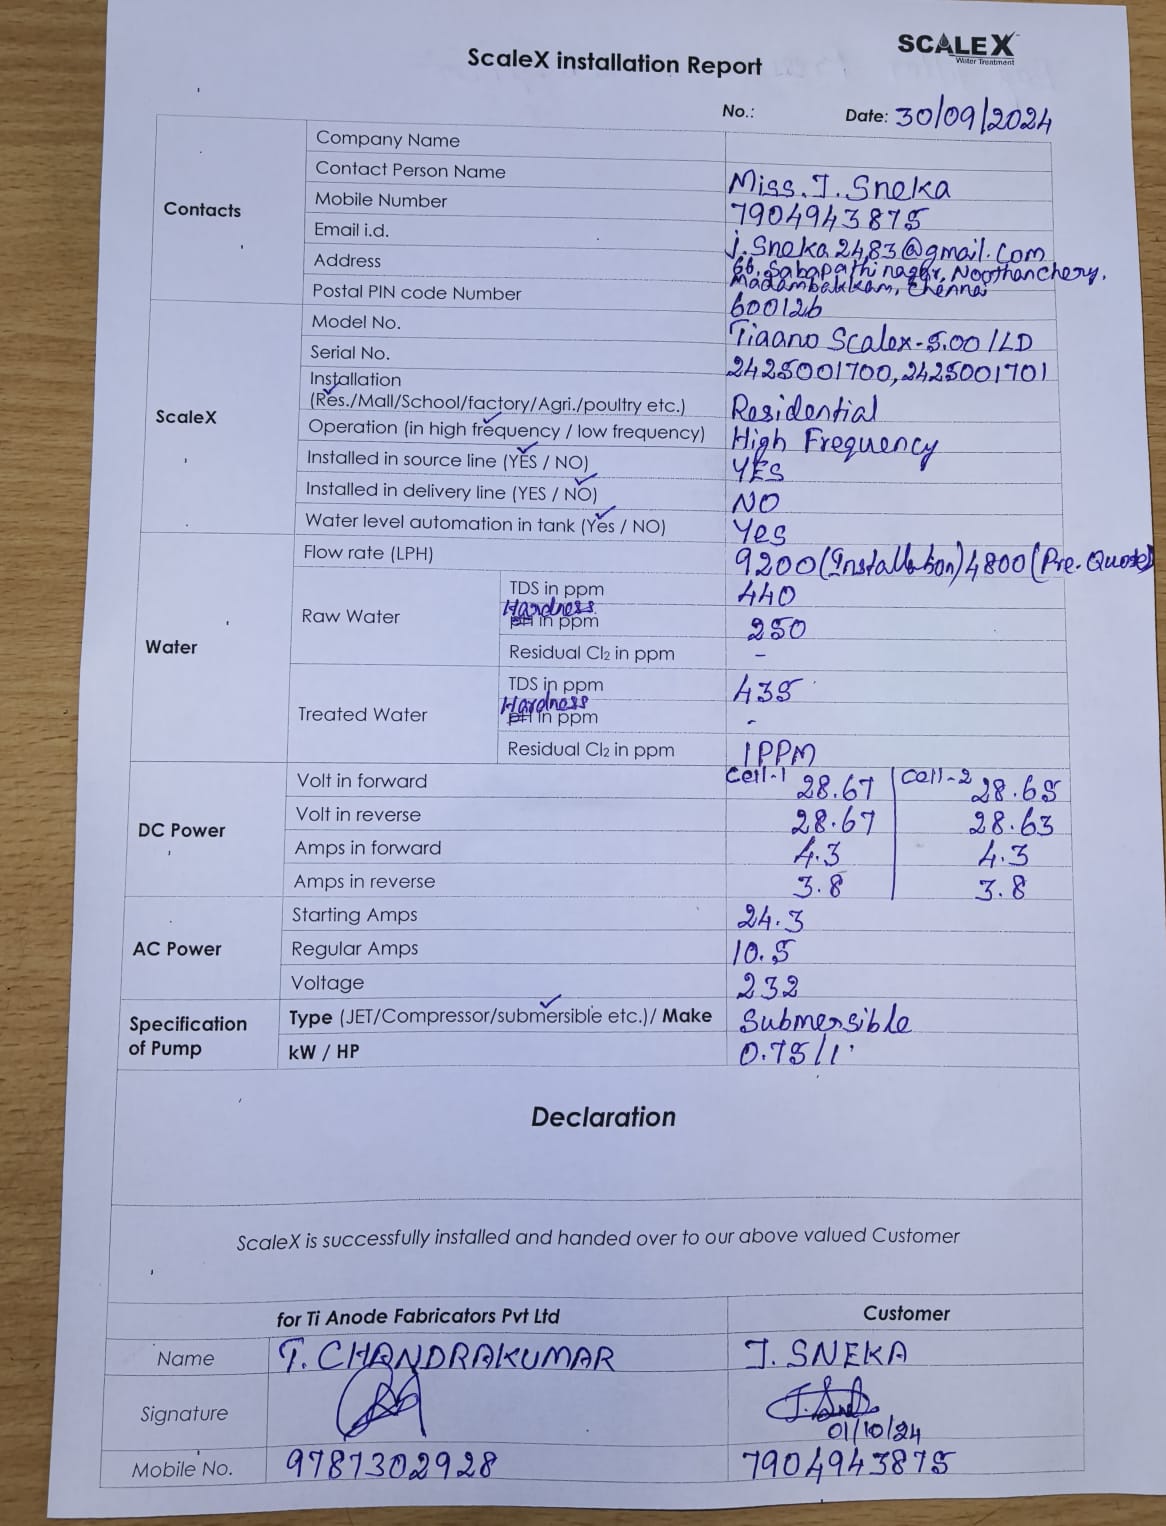 SCALEX
Water Treatment
ScaleX installation Report
No.:
Date: 30/09/2024
Contacts
Company Name
Contact Person Name Miss. J. Sneka
Mobile Number 7904943875
Email i.d. j.Sneka2483@gmail.com
Address 66, Sabapathi nagar, Noothanchery,
Madambakkam, Chennai
Postal PIN code Number 600126
ScaleX
Model No. Tiaano Scalex-5.00 /LD
Serial No. 2425001700, 2425001701
Installation
(Res./Mall/School/factory/Agri./poultry etc.) Residential
Operation (in high frequency / low frequency) High Frequency
Installed in source line (YES / NO) YES
Installed in delivery line (YES / NO) NO
Water level automation in tank (Yes / NO) Yes
Water
Flow rate (LPH) 9200 (Installation) 4800 (Pre. Quote)
Raw Water
TDS in ppm 440
Hardness
pH in ppm 250
Residual Cl₂ in ppm -
Treated Water
TDS in ppm 435
Hardness
pH in ppm -
Residual Cl₂ in ppm 1PPM
DC Power
Cell-1 Cell-2
Volt in forward 28.67 28.65
Volt in reverse 28.67 28.63
Amps in forward 4.3 4.3
Amps in reverse 3.8 3.8
AC Power
Starting Amps 24.3
Regular Amps 10.5
Voltage 232
Specification
of Pump
Type (JET/Compressor/submersible etc.)/ Make Submersible
kW / HP 0.75/1
Declaration
ScaleX is successfully installed and handed over to our above valued Customer
for Ti Anode Fabricators Pvt Ltd Customer
Name T. CHANDRAKUMAR J. SNEKA
Signature
01/10/24
Mobile No. 9787302928 7904943875